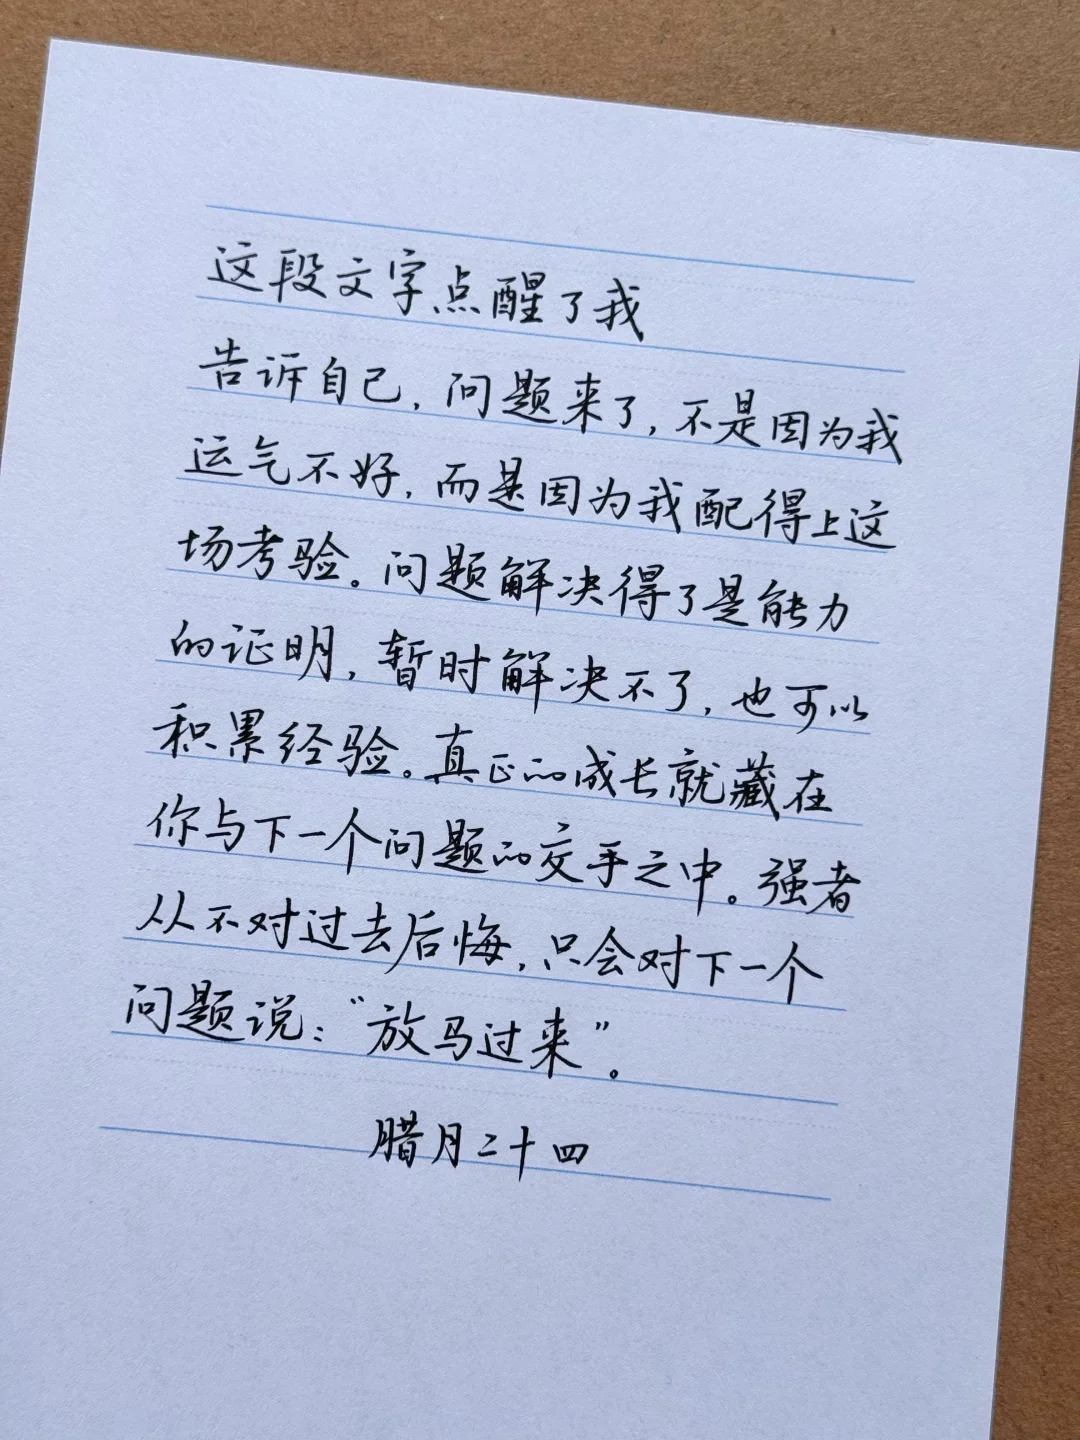 这段文字点醒了我
告诉自己，问题来了，不是因为我
运气不好，而是因为我配得上这
场考验。问题解决得了是能力
的证明，暂时解决不了，也可以
积累经验。真正的成长就藏在
你与下一个问题的交手之中。强者
从不对过去后悔，只会对下一个
问题说：“放马过来”。
腊月二十四